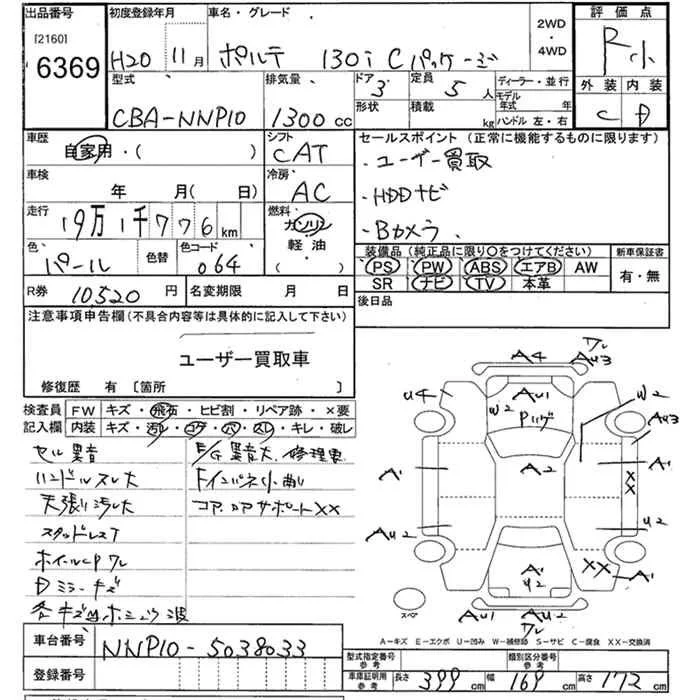 出品番号 初度登録年月 車名・グレード 2WD・4WD 評価点
[2160]
6369 H20 11月 ポルテ 130i Cパッケージ R小
型式 排気量 ドア 3 定員 5人 ディーラー・並行 外装 内装
CBA-NNP10 1300cc 形状 積載 kg モデル年式 年 ハンドル 左・右 C D
車歴 自家用・( ) シフト CAT セールスポイント (正常に機能するものに限ります)
車検 年 月( 日) 冷房 AC ・ユーザー買取
走行 19万1千776km 燃料 ガソリン 軽油 ( ) ・HDDナビ
・Bカメラ
色 パール 色替 色コード 064 装備品 (純正品に限り○をつけてください) 新車保証書
PS PW ABS エアB AW 有・無
SR ナビ TV 本革
R券 10520円 名変期限 月 日 後日品
注意事項申告欄(不具合内容等は具体的に記入して下さい)
ユーザー買取車
修復歴 有 [箇所 ]
検査員 FW キズ・飛石・ヒビ割・リペア跡・×要
記入欄 内装 キズ・汚れ・コゲ・穴・スレ・キレ・破レ
セル異音
ハンドルスレ大
天張り汚れ大
スタッドレスT
ホイールCPワレ
Dミラーキズ
E/G異音大、修理要
コア、コアサポートXX
A4
ワレ
Au3
u4
Au1
W2
W2
Au3
A2
A1
A1
XX
Au2
u2
A1
u2
XX
A1
Au1
Au2
ワレ
スペア
A-キズ E-エクボ U-凹み W-補修跡 S-サビ C-腐食 XX-交換済
車台番号 NNP10-5038033
登録番号
型式指定番号 参考 類別区分番号 参考
車庫証明用 参考 長さ 399cm 幅 169cm 高さ 172cm